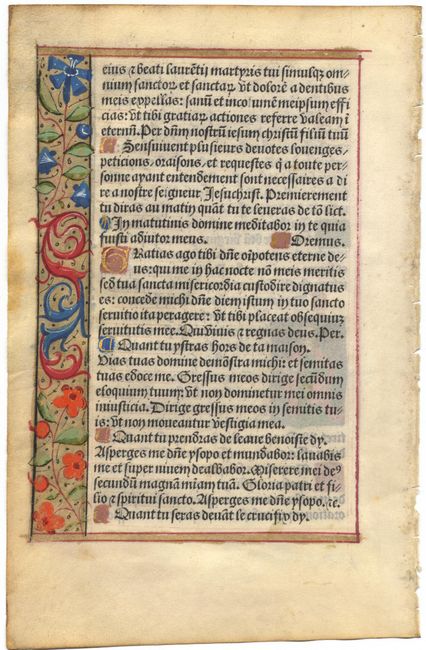 eius ⁊ beati laurētij martyris tui simulqꝫ om-
nium sanctoꝝ et sanctaꝝ vt dolorē a dentibus
meis expellas: sanū et incolumē meipsum effi
cias: vt tibi gratiaꝝ actiones referre valeam ī
eternū. Per dn̄m nostrū iesum christū filiū tuū
Sensuiuent plusieurs deuotes louenges,
peticions, oraisons, et requestes q̄ a toute per-
sonne ayant entendement sont necessaires a di
re a nostre seigneur Jesuchrist. Premierement
tu diras au matin quāt tu te leueras de tō lict.
In matutinis domine meditabor in te quia
fuisti adiutor meus. Oremus.
Gratias ago tibi dn̄e oīpotens eterne de-
us: qui me in hac nocte nō meis meritis
sed tua sancta misericordia custodire dignatus
es: concede michi dn̄e diem istum in tuo sancto
seruitio ita peragere: vt tibi placeat obsequiū
seruitutis mee. Qui viuis ⁊ regnas deus. Per.
Quant tu ystras hors de ta maison.
Vias tuas domine demōstra michi: et semitas
tuas edoce me. Gressus meos dirige secūdum
eloquium tuum: vt non dominetur mei omnis
iniusticia. Dirige gressus meos in semitis tu-
is: vt non moueantur vestigia mea.
Quant tu prendras de leaue benoiste dy.
Asperges me dn̄e ysopo et mundabor: lauabis
me et super niuem dealbabor. Miserere mei deꝰ
secundū magnā miam tuā. Gloria patri et fi-
lio ⁊ spiritui sancto. Asperges me dn̄e ysopo. ⁊c.
Quant tu seras deuāt le crucifix dy.